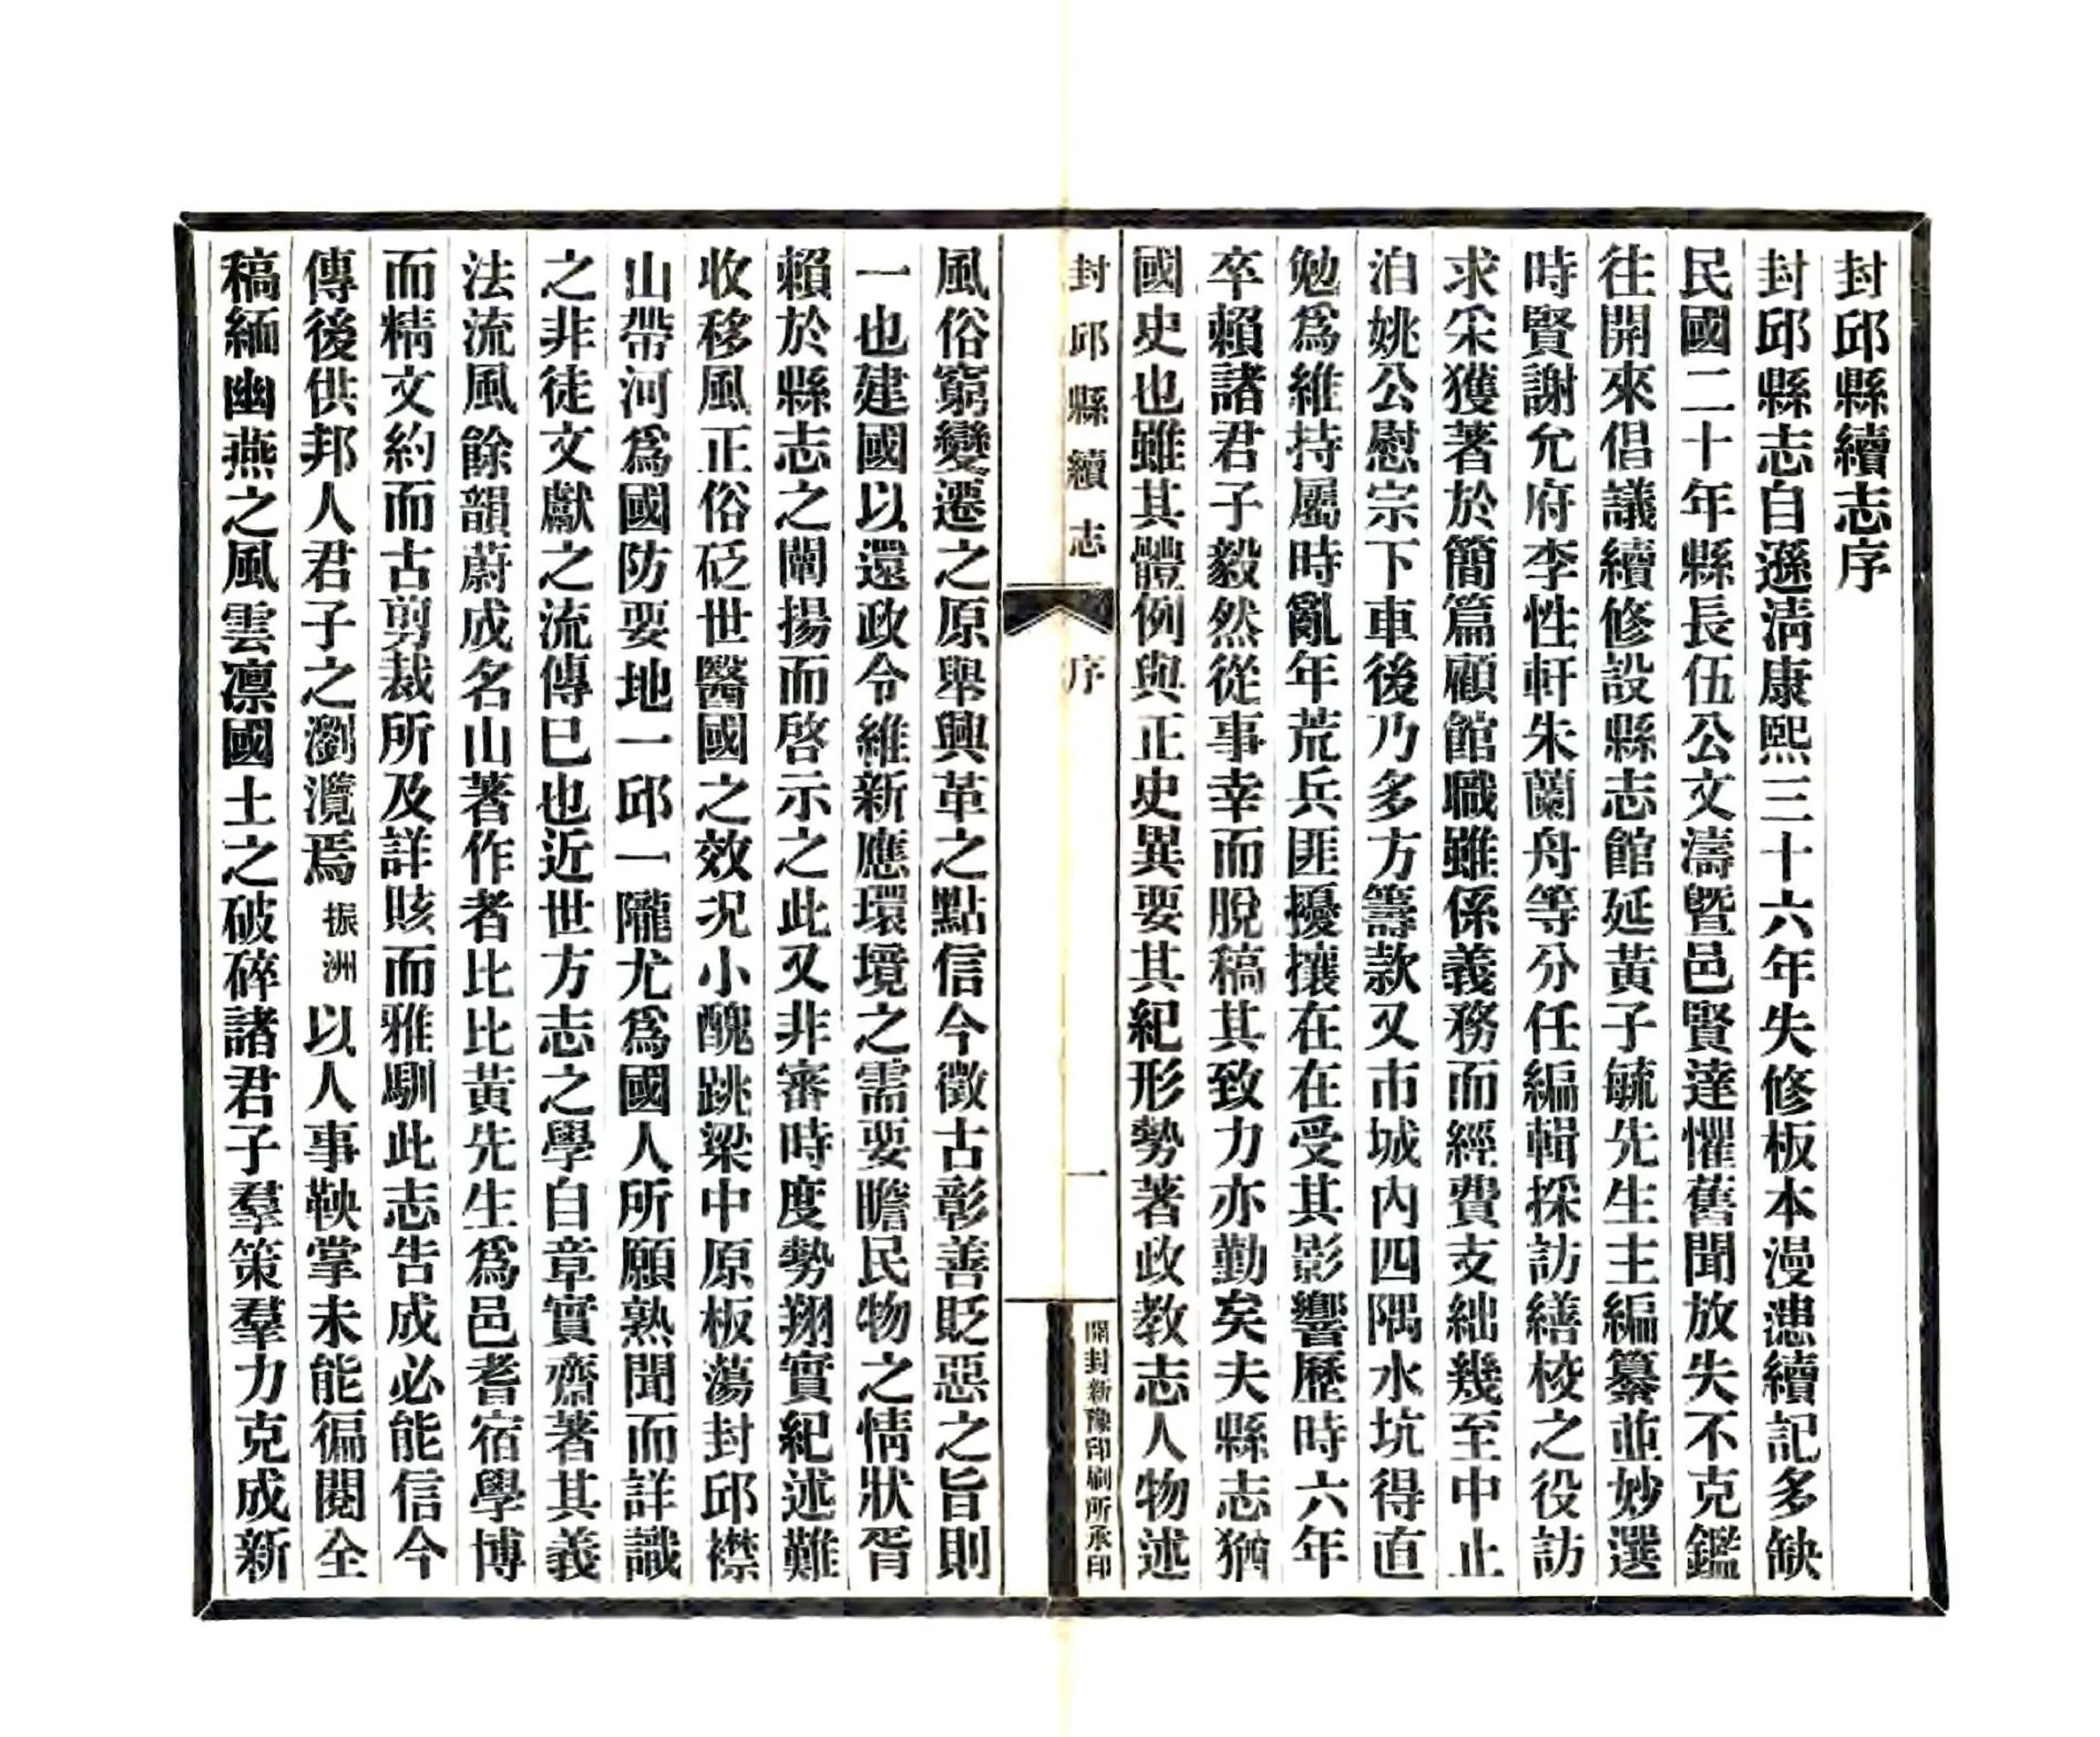 封邱縣續志序
封邱縣志自遜淸康熙三十六年失修板本漫漶續記多缺
民國二十年縣長伍公文濤曁邑賢達懼舊聞放失不克鑑
往開來倡議續修設縣志館延黃子毓先生主編纂並妙選
時賢謝允府李性軒朱蘭舟等分任編輯採訪繕校之役訪
求采獲著於簡篇顧館職雖係義務而經費支絀幾至中止
洎姚公慰宗下車後乃多方籌款又市城內四隅水坑得直
勉爲維持屬時亂年荒兵匪擾攘在在受其影響歷時六年
卒賴諸君子毅然從事幸而脫稿其致力亦勤矣夫縣志猶
國史也雖其體例與正史異要其紀形勢著政教志人物述
封邱縣續志 序 一 開封新豫印刷所承印
風俗窮變遷之原舉興革之點信今徵古彰善貶惡之旨則
一也建國以還政令維新應環境之需要瞻民物之情狀胥
賴於縣志之闡揚而啓示之此又非審時度勢翔實紀述難
收移風正俗砭世醫國之效况小醜跳梁中原板蕩封邱襟
山帶河爲國防要地一邱一隴尤爲國人所願熟聞而詳識
之非徒文獻之流傳已也近世方志之學自章實齋著其義
法流風餘韻蔚成名山著作者比比黃先生爲邑耆宿學博
而精文約而古剪裁所及詳賅而雅馴此志告成必能信今
傳後供邦人君子之瀏灠焉振洲以人事鞅掌未能徧閱全
稿緬幽燕之風雲凛國土之破碎諸君子羣策羣力克成新